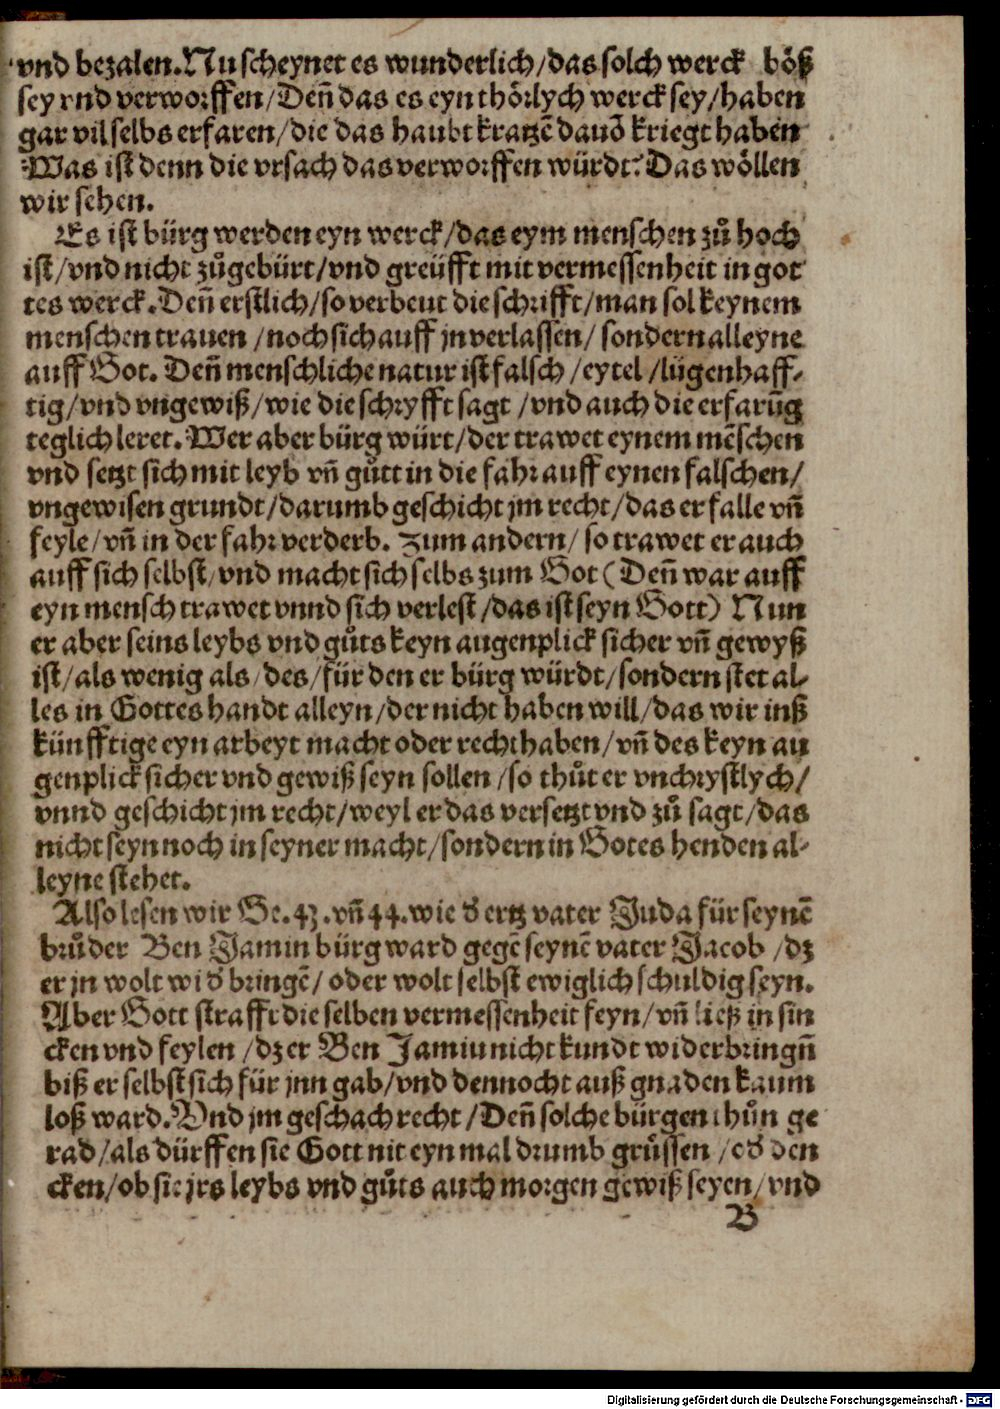 vnd bezalen. Nu scheynet es wunderlich/das solch werck böß
sey vnd verworffen/Deñ das es eyn thörlych werck sey/haben
gar vil selbs erfaren/die das haubt kratzē dauō kriegt haben
Was ist denn die vrsach das verworffen würdt? Das wöllen
wir sehen.
Es ist bürg werden eyn werck/das eym menschen zů hoch
ist/vnd nicht zůgebürt/vnd greüfft mit vermessenheit in got
tes werck. Deñ erstlich/so verbeut die schrifft/man sol keynem
menschen trauen /noch sich auff jn verlassen/ sondern alleyne
auff Got. Deñ menschliche natur ist falsch /eytel /lügenhaff-
tig/vnd vngewiß/wie die schryfft sagt /vnd auch die erfarūg
teglich leret. Wer aber bürg würt/der trawet eynem mēschen
vnd setzt sich mit leyb vñ gůtt in die fahr auff eynen falschen/
vngewisen grundt/darumb geschicht jm recht/das er falle vñ
feyle/vñ in der fahr verderb. Zum andern/ so trawet er auch
auff sich selbst/vnd macht sich selbs zum Got (Deñ war auff
eyn mensch trawet vnnd sich verlest /das ist seyn Gott) Nun
er aber seins leybs vnd gůts keyn augenplick sicher vñ gewyß
ist/als wenig als/des/für den er bürg würdt/sondern stet al-
les in Gottes handt alleyn/der nicht haben will/das wir inß
künfftige eyn arbeyt macht oder recht haben/vñ des keyn au
genplick sicher vnd gewiß seyn sollen /so thůt er vnchrystlych/
vnnd geschicht jm recht/weyl er das versetzt vnd zů sagt/das
nicht seyn noch in seyner macht/sondern in Gotes henden al-
leyne stehet.
Also lesen wir Ge. 43. vñ 44. wie ð ertz vater Juda für seynē
brůder Ben Jamin bürg ward gegē seynē vater Jacob /dz
er jn wolt wið bringē/ oder wolt selbst ewiglich schuldig seyn.
Aber Gott strafft die selben vermessenheit feyn/vñ ließ in sin
cken vnd feylen /dz er Ben Jamiu nicht kundt widerbringñ
biß er selbst sich für jnn gab/vnd dennocht auß gnaden kaum
loß ward. Vnd jm geschach recht /Deñ solche bürgen thůn ge
rad/als dürffen sie Gott nit eyn mal drumb grůssen /oð den
cken/ob sie jrs leybs vnd gůts auch morgen gewiß seyen/vnd
B
Digitalisierung gefördert durch die Deutsche Forschungsgemeinschaft - DFG